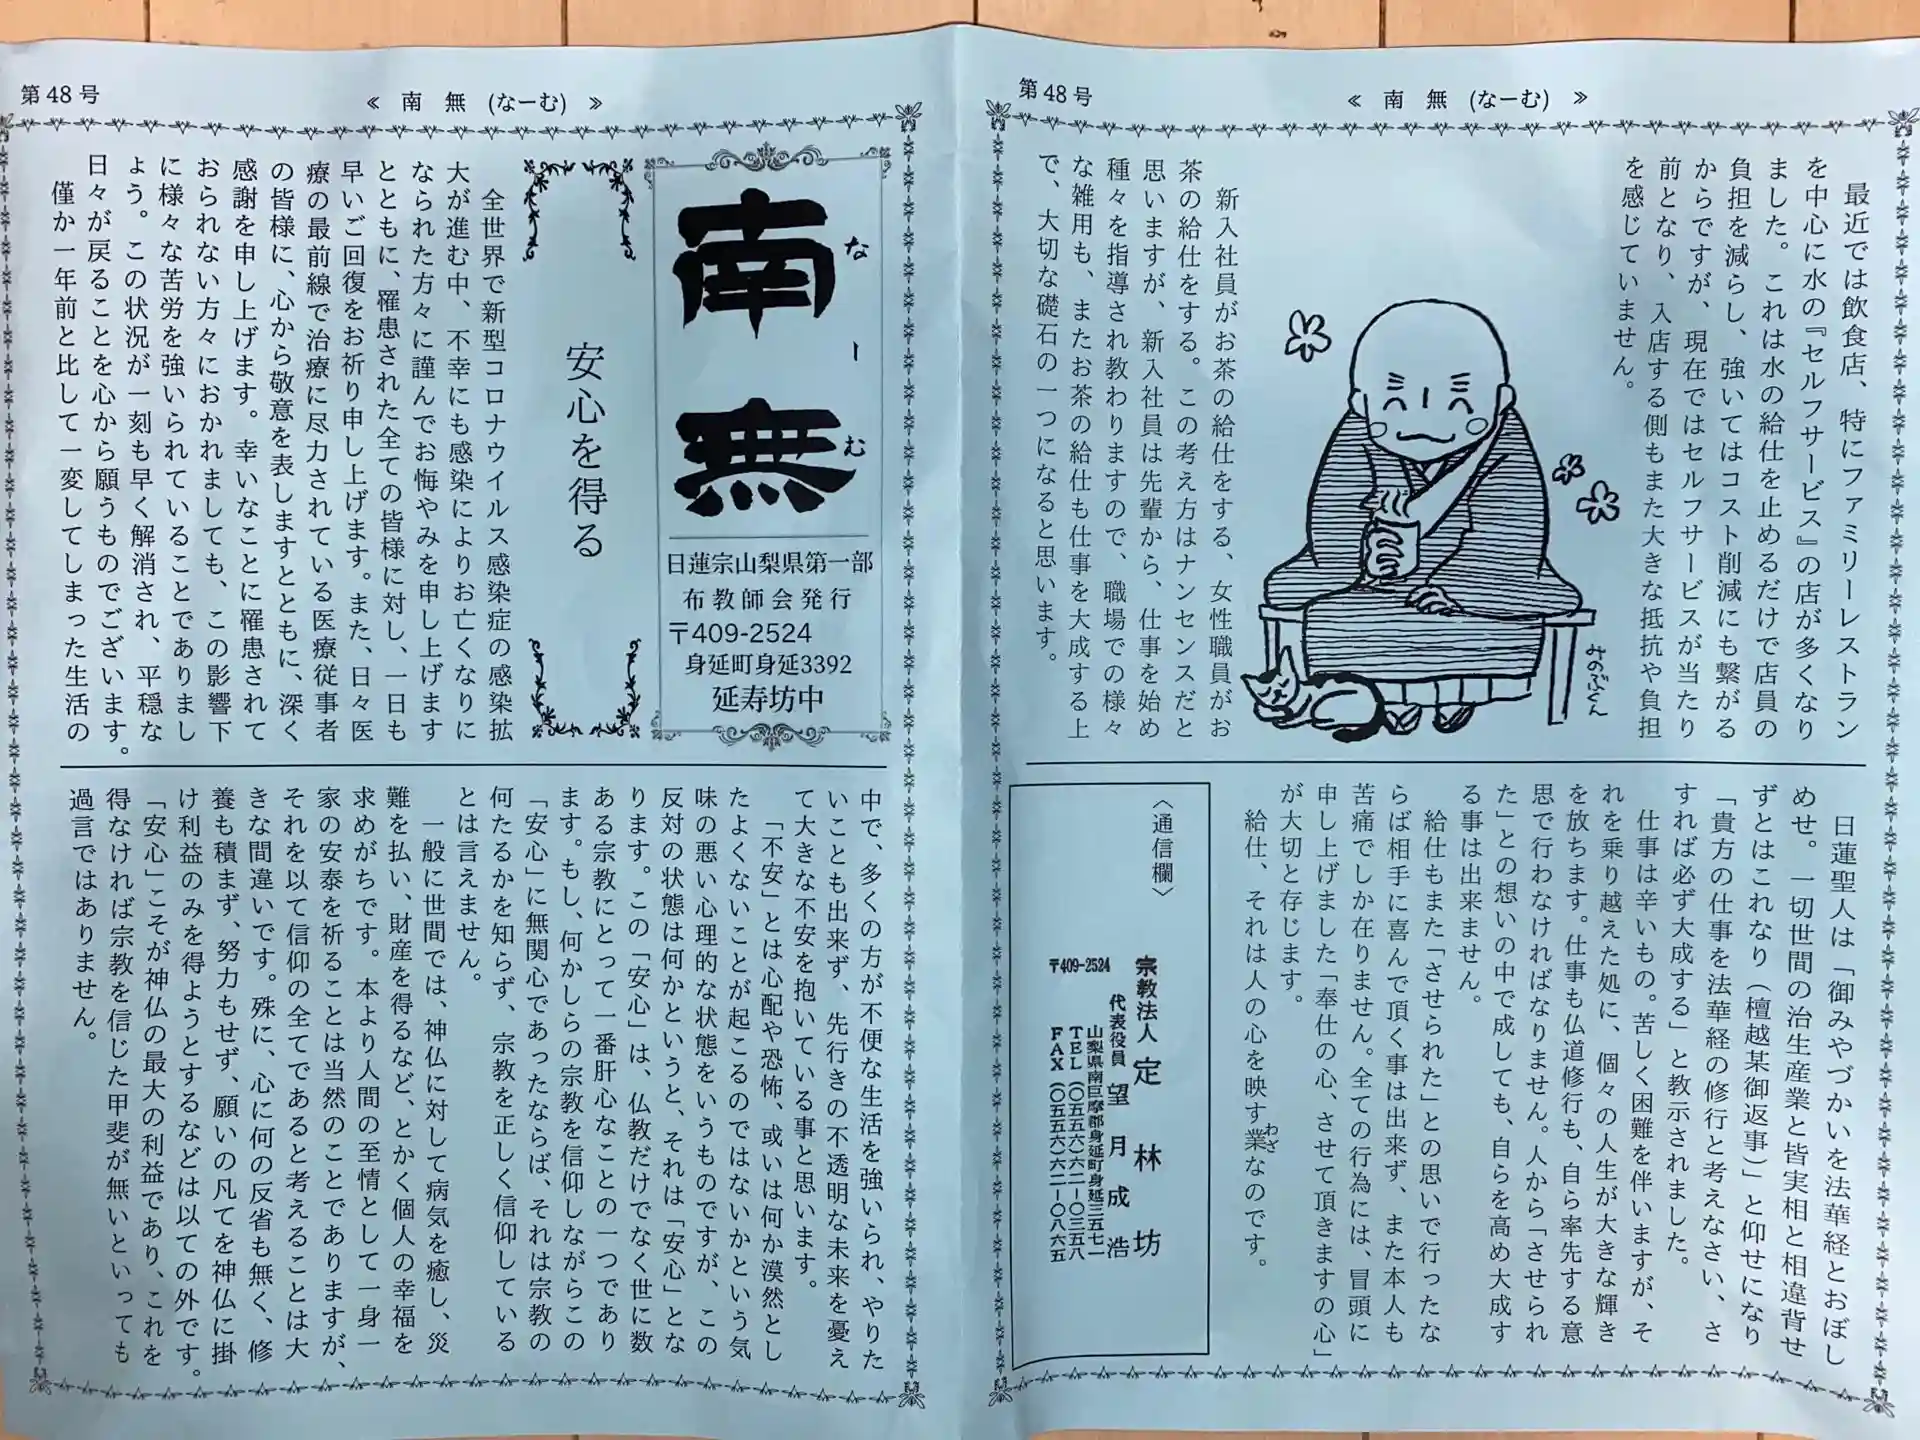 第48号
≪ 南 無 (なーむ) ≫
南無
なーむ
日蓮宗山梨県第一部
布教師会発行
〒409-2524
身延町身延3392
延寿坊中
安心を得る
全世界で新型コロナウイルス感染症の感染拡
大が進む中、不幸にも感染によりお亡くなりに
なられた方々に謹んでお悔やみを申し上げます
とともに、罹患された全ての皆様に対し、一日も
早いご回復をお祈り申し上げます。また、日々医
療の最前線で治療に尽力されている医療従事者
の皆様に、心から敬意を表しますとともに、深く
感謝を申し上げます。幸いなことに罹患されて
おられない方々におかれましても、この影響下
に様々な苦労を強いられていることでありまし
ょう。この状況が一刻も早く解消され、平穏な
日々が戻ることを心から願うものでございます。
僅か一年前と比して一変してしまった生活の
中で、多くの方が不便な生活を強いられ、やりた
いことも出来ず、先行きの不透明な未来を憂え
て大きな不安を抱いている事と思います。
「不安」とは心配や恐怖、或いは何か漠然とし
たよくないことが起こるのではないかという気
味の悪い心理的な状態をいうものですが、この
反対の状態は何かというと、それは「安心」とな
ります。この「安心」は、仏教だけでなく世に数
ある宗教にとって一番肝心なことの一つであり
ます。もし、何かしらの宗教を信仰しながらこの
「安心」に無関心であったならば、それは宗教の
何たるかを知らず、宗教を正しく信仰している
とは言えません。
一般に世間では、神仏に対して病気を癒し、災
難を払い、財産を得るなど、とかく個人の幸福を
求めがちです。本より人間の至情として一身一
家の安泰を祈ることは当然のことでありますが、
それを以て信仰の全てであると考えることは大
きな間違いです。殊に、心に何の反省も無く、修
養も積まず、努力もせず、願いの凡てを神仏に掛
け利益のみを得ようとするなどは以ての外です。
「安心」こそが神仏の最大の利益であり、これを
得なければ宗教を信じた甲斐が無いといっても
過言ではありません。
第48号
≪ 南 無 (なーむ) ≫
最近では飲食店、特にファミリーレストラン
を中心に水の『セルフサービス』の店が多くなり
ました。これは水の給仕を止めるだけで店員の
負担を減らし、強いてはコスト削減にも繋がる
からですが、現在ではセルフサービスが当たり
前となり、入店する側もまた大きな抵抗や負担
を感じていません。
みのぶさん
新入社員がお茶の給仕をする、女性職員がお
茶の給仕をする。この考え方はナンセンスだと
思いますが、新入社員は先輩から、仕事を始め
種々を指導され教わりますので、職場での様々
な雑用も、またお茶の給仕も仕事を大成する上
で、大切な礎石の一つになると思います。
日蓮聖人は「御みやづかいを法華経とおぼし
めせ。一切世間の治生産業と皆実相と相違背せ
ずとはこれなり（檀越某御返事）」と仰せになり
「貴方の仕事を法華経の修行と考えなさい、さ
すれば必ず大成する」と教示されました。
仕事は辛いもの。苦しく困難を伴いますが、そ
れを乗り越えた処に、個々の人生が大きな輝き
を放ちます。仕事も仏道修行も、自ら率先する意
思で行わなければなりません。人から「させられ
た」との想いの中で成しても、自らを高め大成す
る事は出来ません。
給仕もまた「させられた」との思いで行ったな
らば相手に喜んで頂く事は出来ず、また本人も
苦痛でしか在りません。全ての行為には、冒頭に
申し上げました「奉仕の心、させて頂きますの心」
が大切と存じます。
給仕、それは人の心を映す業なのです。
わざ
〈通信欄〉
宗教法人 定林坊
代表役員 望月成浩
〒409-2524
山梨県南巨摩郡身延町身延三五七一
TEL（〇五五六）六二ー〇三五八
FAX（〇五五六）六二ー〇八六五